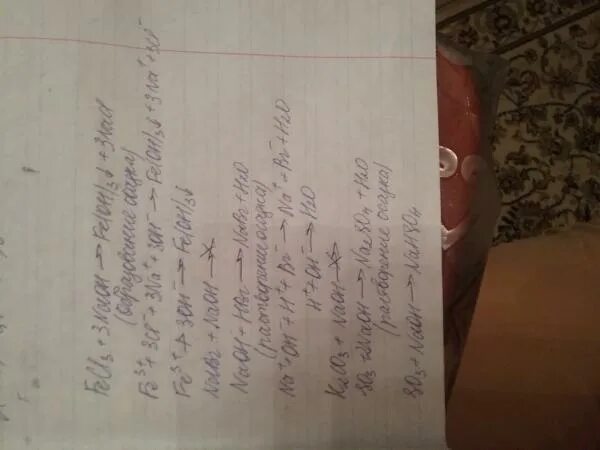 FeCl3 + 3NaOH → Fe(OH)3↓ + 3NaCl
(образование осадка)
Fe3+ + 3Cl- + 3Na+ + 3OH- → Fe(OH)3↓ + 3Na+ + 3Cl-
Fe3+ + 3OH- → Fe(OH)3↓
NaBr + NaOH ↛
NaOH + HBr → NaBr + H2O
(растворение осадка)
Na+ + OH- + H+ + Br- → Na+ + Br- + H2O
H+ + OH- → H2O
K2CO3 + NaOH ↛
SO3 + 2NaOH → Na2SO4 + H2O
(растворение осадка)
SO3 + NaOH → NaHSO4